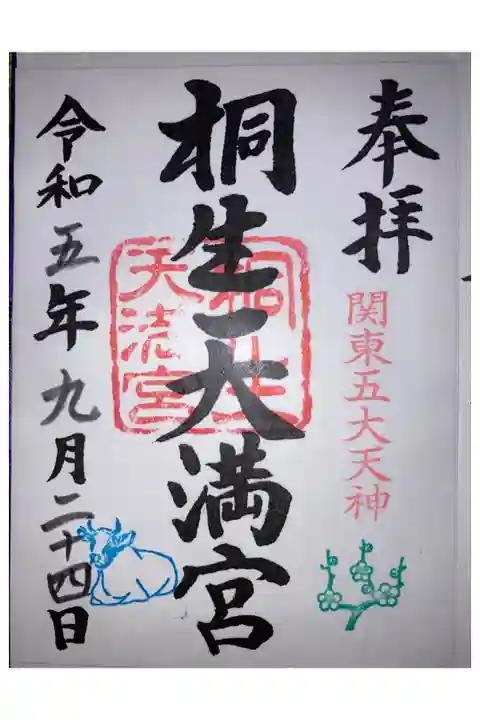 奉拝
関東五大天神
桐生天満宮
桐生
天満宮
令和五年九月二十四日